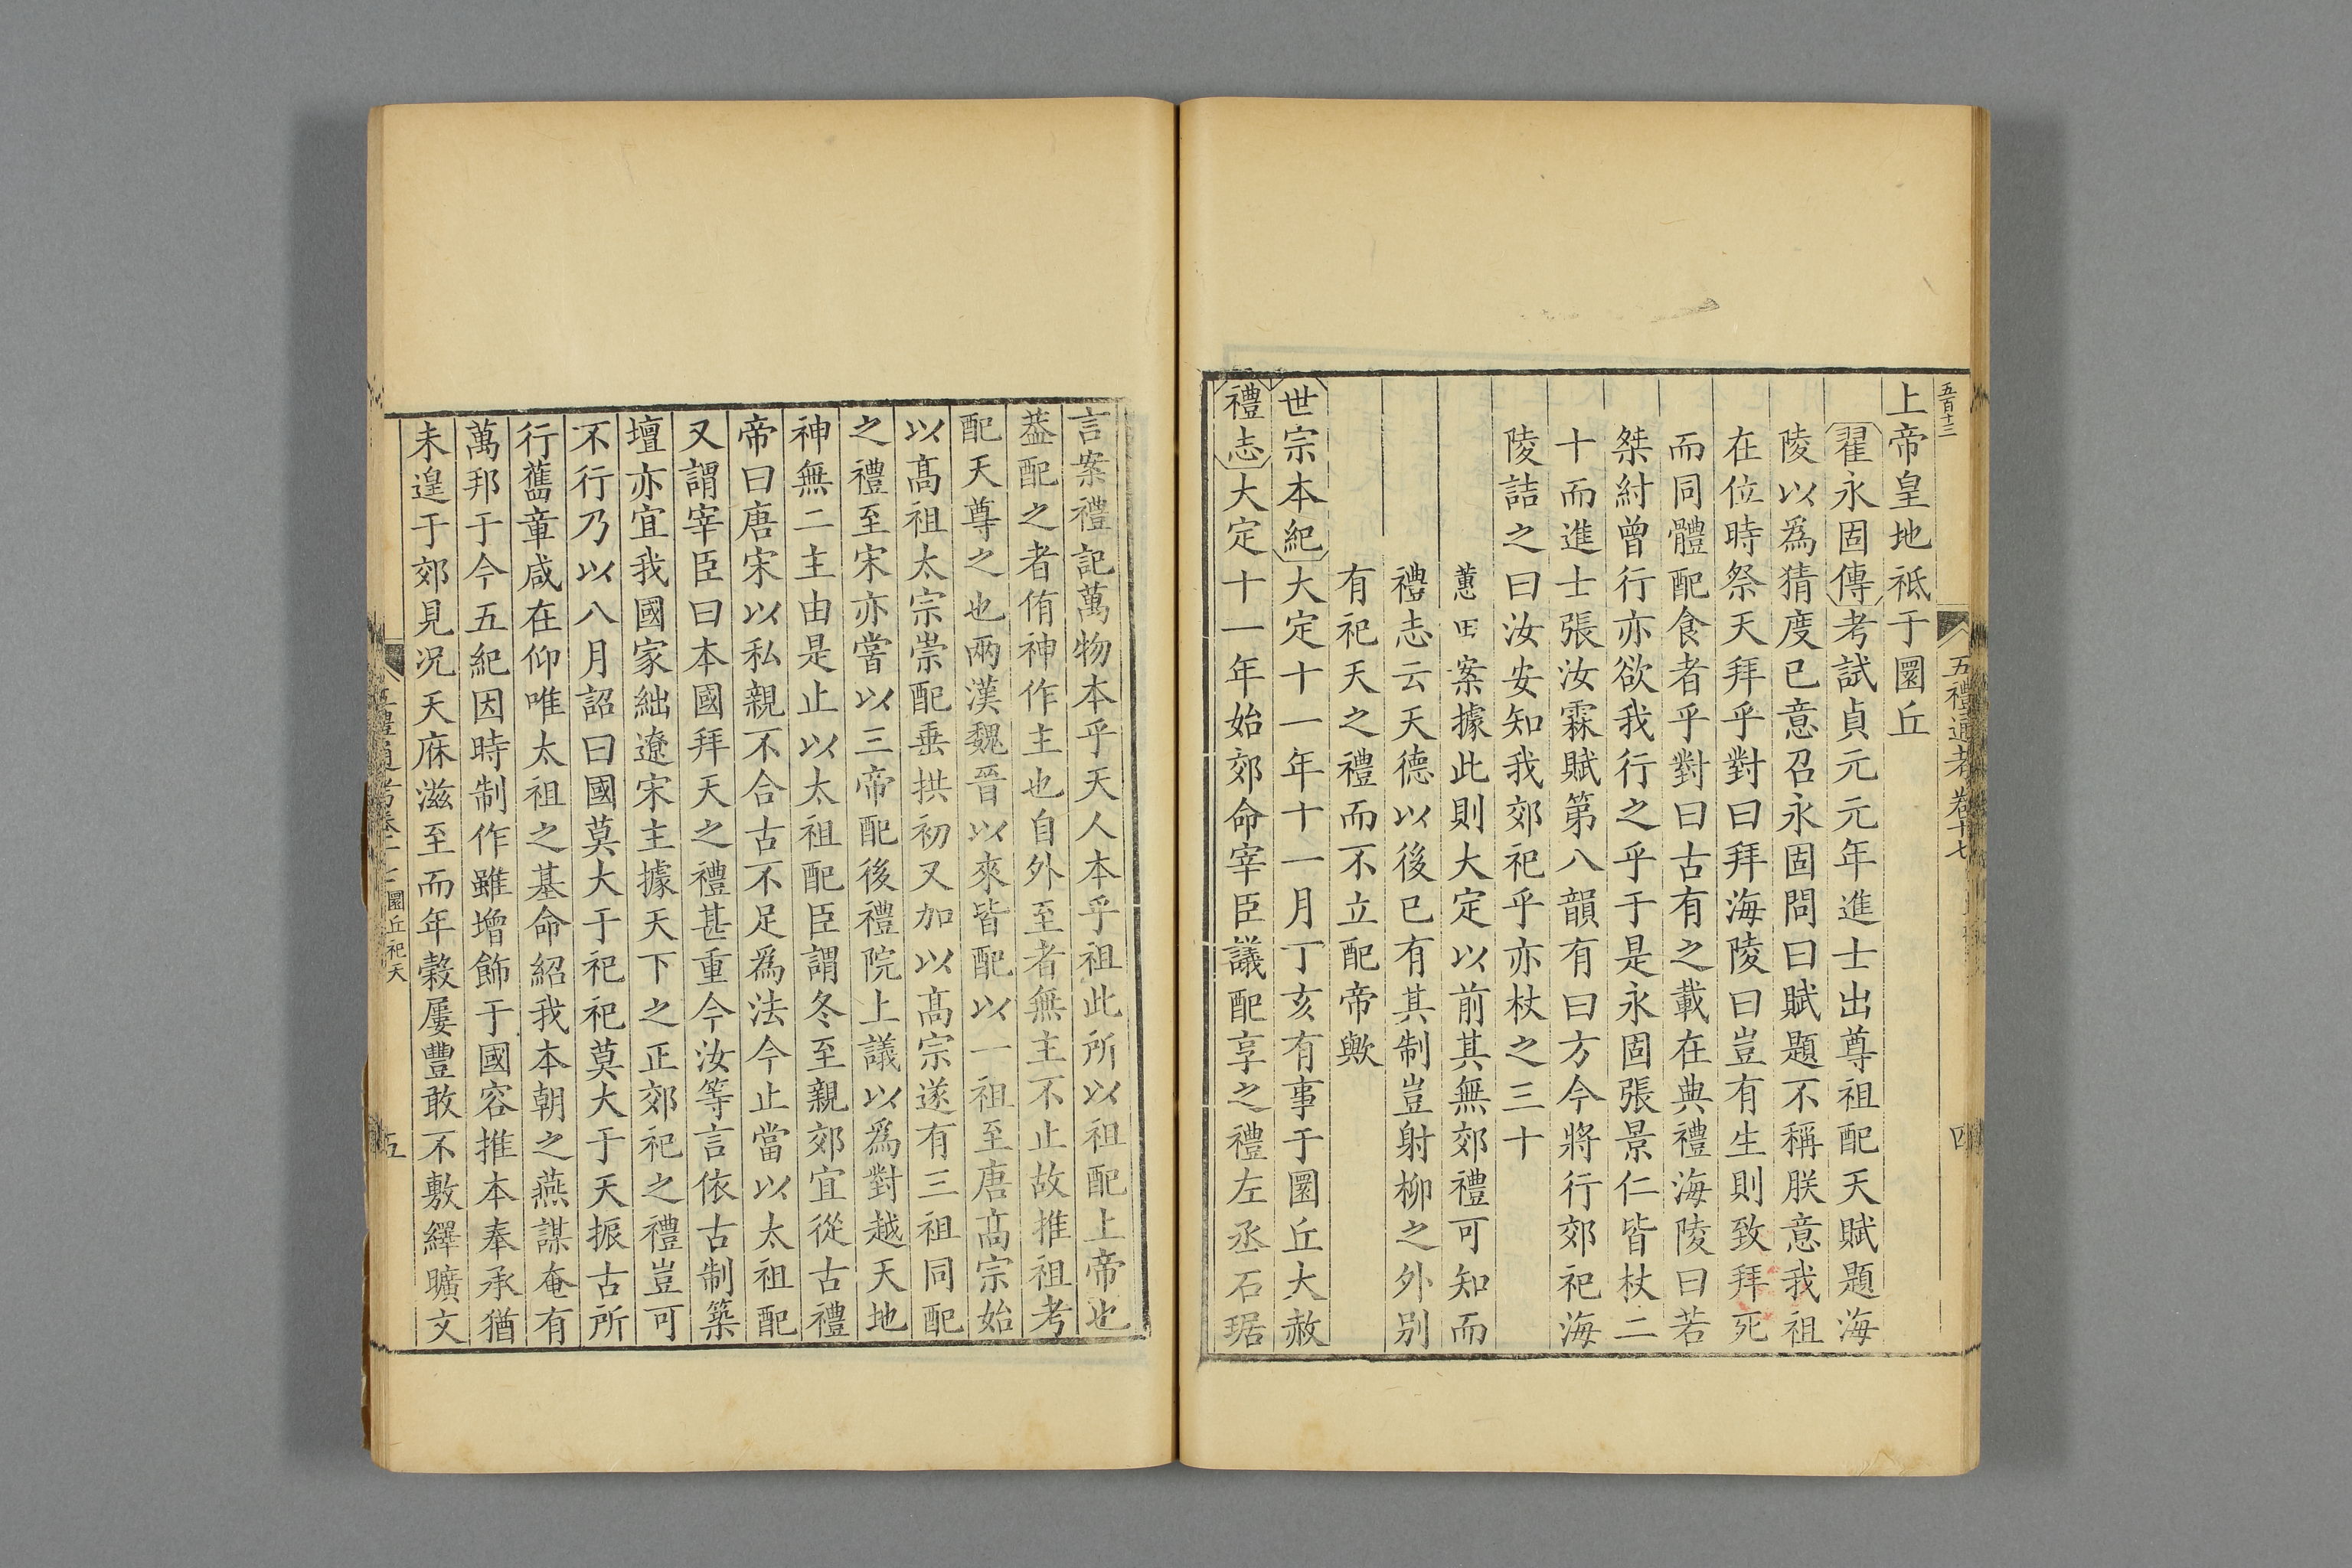 五百十二
五禮通考卷十七
四
上帝皇地祗于圜丘
翟永固傳考試貞元元年進士出尊祖配天賦題海
陵以爲猜度已意召永固問曰賦題不稱朕意我祖
在位時祭天拜乎對曰拜海陵曰豈有生則致拜死
而同體配食者乎對曰古有之載在典禮海陵曰若
桀紂曾行亦欲我行之乎于是永固張景仁皆杖二
十而進士張汝霖賦第八韻有曰方今將行郊祀海
陵詰之曰汝安知我郊祀乎亦杖之三十
蕙田案據此則大定以前其無郊禮可知而
禮志云天德以後已有其制豈射柳之外別
有祀天之禮而不立配帝歟
世宗本紀大定十一年十一月丁亥有事于圜丘大赦
禮志大定十一年始郊命宰臣議配享之禮左丞石琚
言案禮記萬物本乎天人本乎祖此所以祖配上帝也
葢配之者侑神作主也自外至者無主不止故推祖考
配天尊之也兩漢魏晉以來皆配以一祖至唐高宗始
以高祖太宗崇配垂拱初又加以高宗遂有三祖同配
之禮至宋亦嘗以三帝配後禮院上議以爲對越天地
神無二主由是止以太祖配臣謂冬至親郊宜從古禮
帝曰唐宋以私親不合古不足爲法今止當以太祖配
又謂宰臣曰本國拜天之禮甚重今汝等言依古制築
壇亦宜我國家絀遼宋主據天下之正郊祀之禮豈可
不行乃以八月詔曰國莫大于祀祀莫大于天振古所
行舊章咸在仰唯太祖之基命紹我本朝之燕謀奄有
萬邦于今五紀因時制作雖增飾于國容推本奉承猶
未遑于郊見況天庥滋至而年穀屢豐敢不敷繹曠文
五禮通考卷十七 圜丘祀天
五